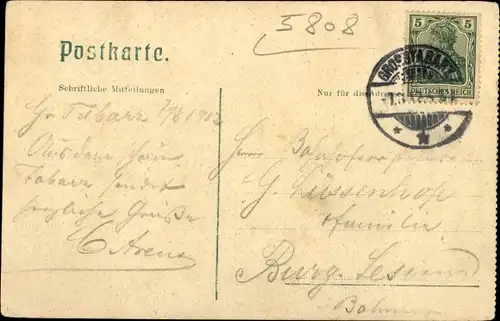 5808
Postkarte.
5 5
DEUTSCHES REICH
GROSSTABARZ
Schriftliche Mitteilungen
Nur für die Adresse
Gr Tabarz 7/8 1912
Aus dem schön
Tabarz sendet
herzliche Grüße
C Arens
Herrn Bahnhofs
G. Lüssenhop
Familie
Burg-Lesum
Bahn